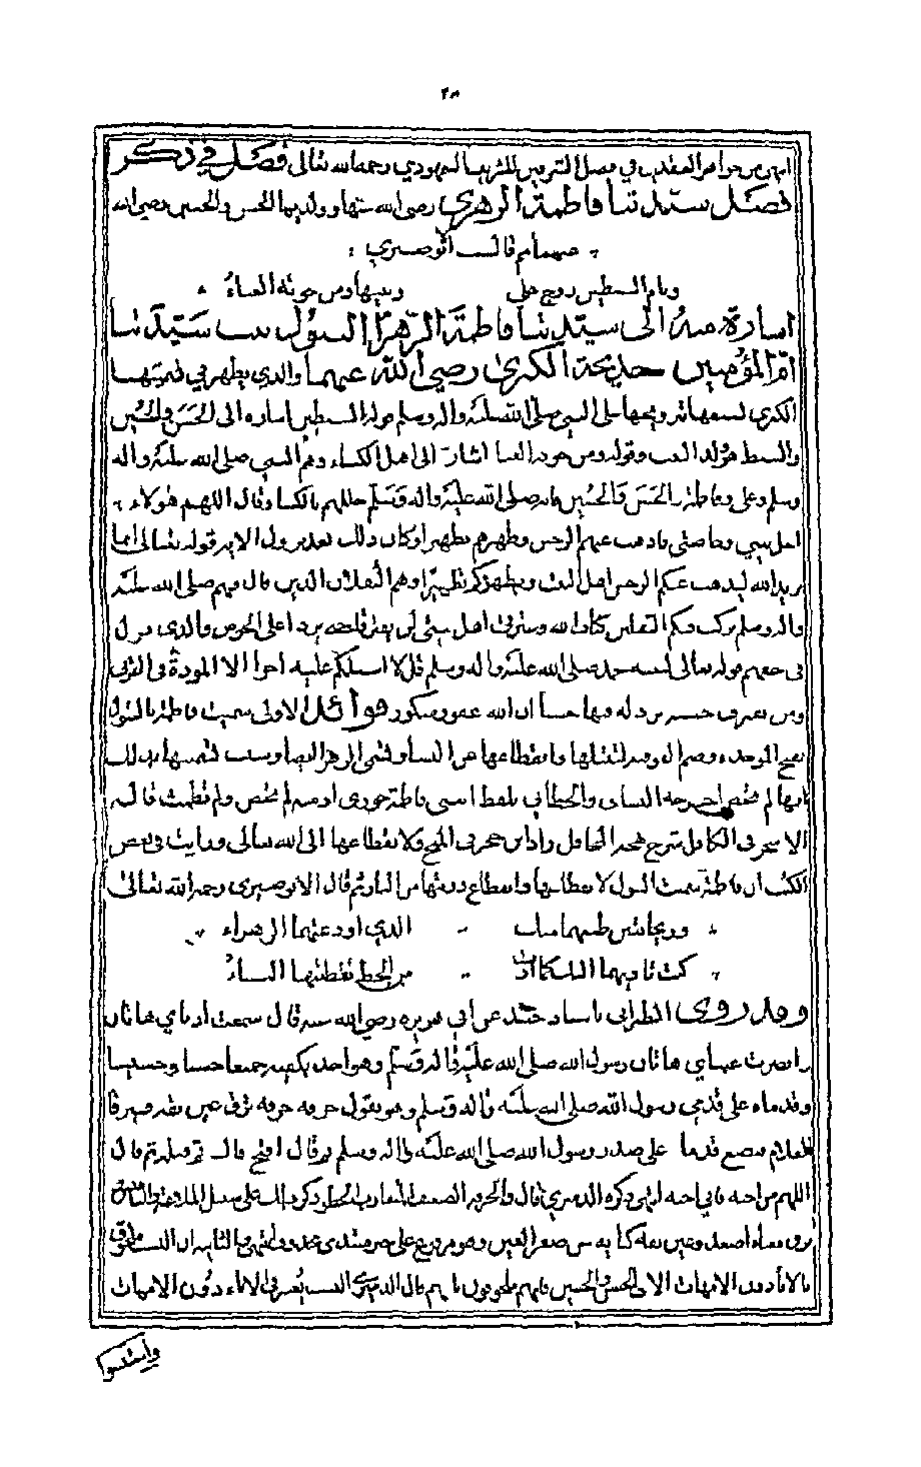 ٢٥
انتهى من جواهر العقدين في فضل الشريفين للشريف السمهودي رحمه الله تعالى فصل في ذكر
فضل سيدتنا فاطمة الزهرى رضي الله عنها وولديها الحسن والحسين رضي الله
عنهما قال الابوصيري
وبام السبطين زوج علي وبنيها ومن حوته العباء
اشارة منه الى سيدتنا فاطمة الزهرا البتول بنت سيدتنا
ام المؤمنين خديجة الكبرى رضي الله عنهما والذي يظهر في
الكبرى صلى الله عليه واله وسلم قوله السبطين اشاره الى الحسن والحسين
والسبط هو ولد الولد وقوله ومن حوته العبا اشارة الى اهل الكساء وهم النبي صلى الله عليه واله
وسلم وعلي وفاطمة والحسن والحسين فانه صلى الله عليه واله وسلم جللهم بالكسا وقال اللهم هولاء
اهل بيتي وخاصتي فاذهب عنهم الرجس وطهرهم تطهيرا وكان ذلك بعد نزول الايه قوله تعالى انما
يريد الله ليذهب عنكم الرجس اهل البيت ويطهركم تطهيرا وهم الثقلان الذين قال فيهم صلى الله عليه
واله وسلم تركت فيكم الثقلين كتاب الله وعترتي اهل بيتي لن يفترقا حتى يردا على الحوض والذي نزل
في حقهم قوله تعالى لنبيه محمد صلى الله عليه واله وسلم قل لا اسئلكم عليه اجرا الا المودة في القربى
ومن يقترف حسنه نزد له فيها حسنا ان الله غفور شكور فوائد الاولى سميت فاطمة بالبتول
بفتح الموحده وضم وانقطاعها عن النسا وتسمى الزهرا ايضا وسبب تسميتها بذلك
انها لم تحض اخرجه النساى والخطاب بلفظ ابنتي فاطمة حورى ادميه لم تحض ولم تطمث قاله
الاشخر في الكامل شرح المحافل وزاد ابن حجر في المنح ولانقطاعها الى الله تعالى ورايت في بعض
الكتب ان فاطمة سميت البتول لانقطاعها وانقطاع ذريتها من النار ثم قال الابوصيري رحمه الله تعالى
وريحانتين طيبهما منك الذي اودعتهما الزهراء
كنت تاويهما اليك كما اوت من الخط نقطتيها الياء
وقد روى الطبراني باسناد جيد عن ابي هريره رضي الله عنه قال سمعت اذناي هاتان
وابصرت عيناي هاتان رسول الله صلى الله عليه واله وسلم وهو اخذ بكفيه جميعا حسنا وحسينا
وقدماه على قدمي رسول الله صلى الله عليه واله وسلم وهو يقول حزقه حزقه ترق عين بقه فيرقا
الغلام فيضع قدما على صدر رسول الله صلى الله عليه واله وسلم ثم قال افتح فاك ثم قبله ثم قال
اللهم من احبه فاني احبه انتهى ذكره الدميري قال والحزقه الضعيف المتقارب الخطو ذكره له على سبيل الملاعبة والتانيس
ترق معناه اصعد وعين بقه كنايه عن صغر العين وهو مرفوع على خبر مبتدى محذوف انتهى الثانيه ان النسب
بالابا دون الامهات الا في الحسن والحسين فانهم قال الدميري النسب يعرف بالاباء دون الامهات
واستدلوا